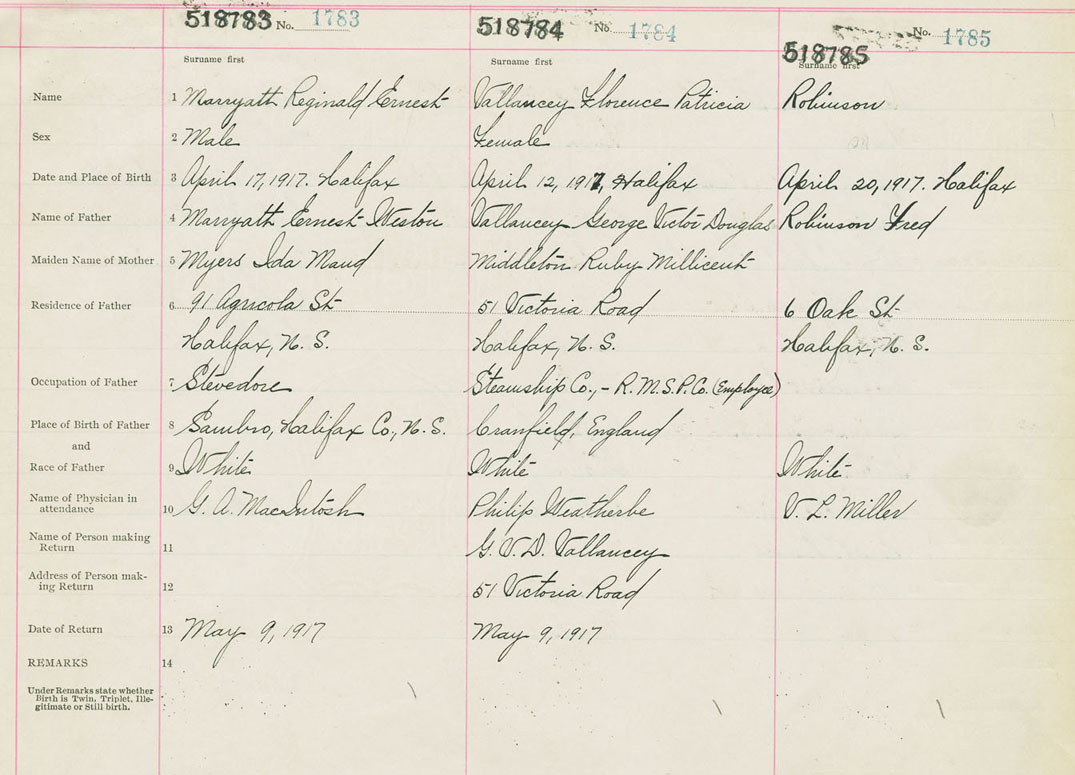 518783 No. 1783 518784 No. 1784 518785 No. 1785
Surname first Surname first Surname first
Name 1 Marryath Reginald Ernest Vallancey Florence Patricia Robinson
Sex 2 Male Female
Date and Place of Birth 3 April 17, 1917. Halifax April 12, 1917, Halifax April 20, 1917. Halifax
Name of Father 4 Marryath Ernest Weston Vallancey George Victor Douglas Robinson Fred
Maiden Name of Mother 5 Myers Ida Maud Middleton Ruby Millicent
Residence of Father 6 91 Agricola St 51 Victoria Road 6 Oak St
Halifax, N. S. Halifax, N. S. Halifax, N. S.
Occupation of Father 7 Stevedore Steamship Co., - R.M.S.P.Co. (Employee)
Place of Birth of Father 8 Sambro, Halifax Co., N. S. Cranfield, England
and
Race of Father 9 White White White
Name of Physician in
attendance 10 G. A. MacIntosh Philip Weatherbe V. L. Miller
Name of Person making
Return 11 G. V. D. Vallancey
Address of Person mak-
ing Return 12 51 Victoria Road
Date of Return 13 May 9, 1917 May 9, 1917
REMARKS 14
Under Remarks state whether
Birth is Twin, Triplet, Ille-
gitimate or Still birth.